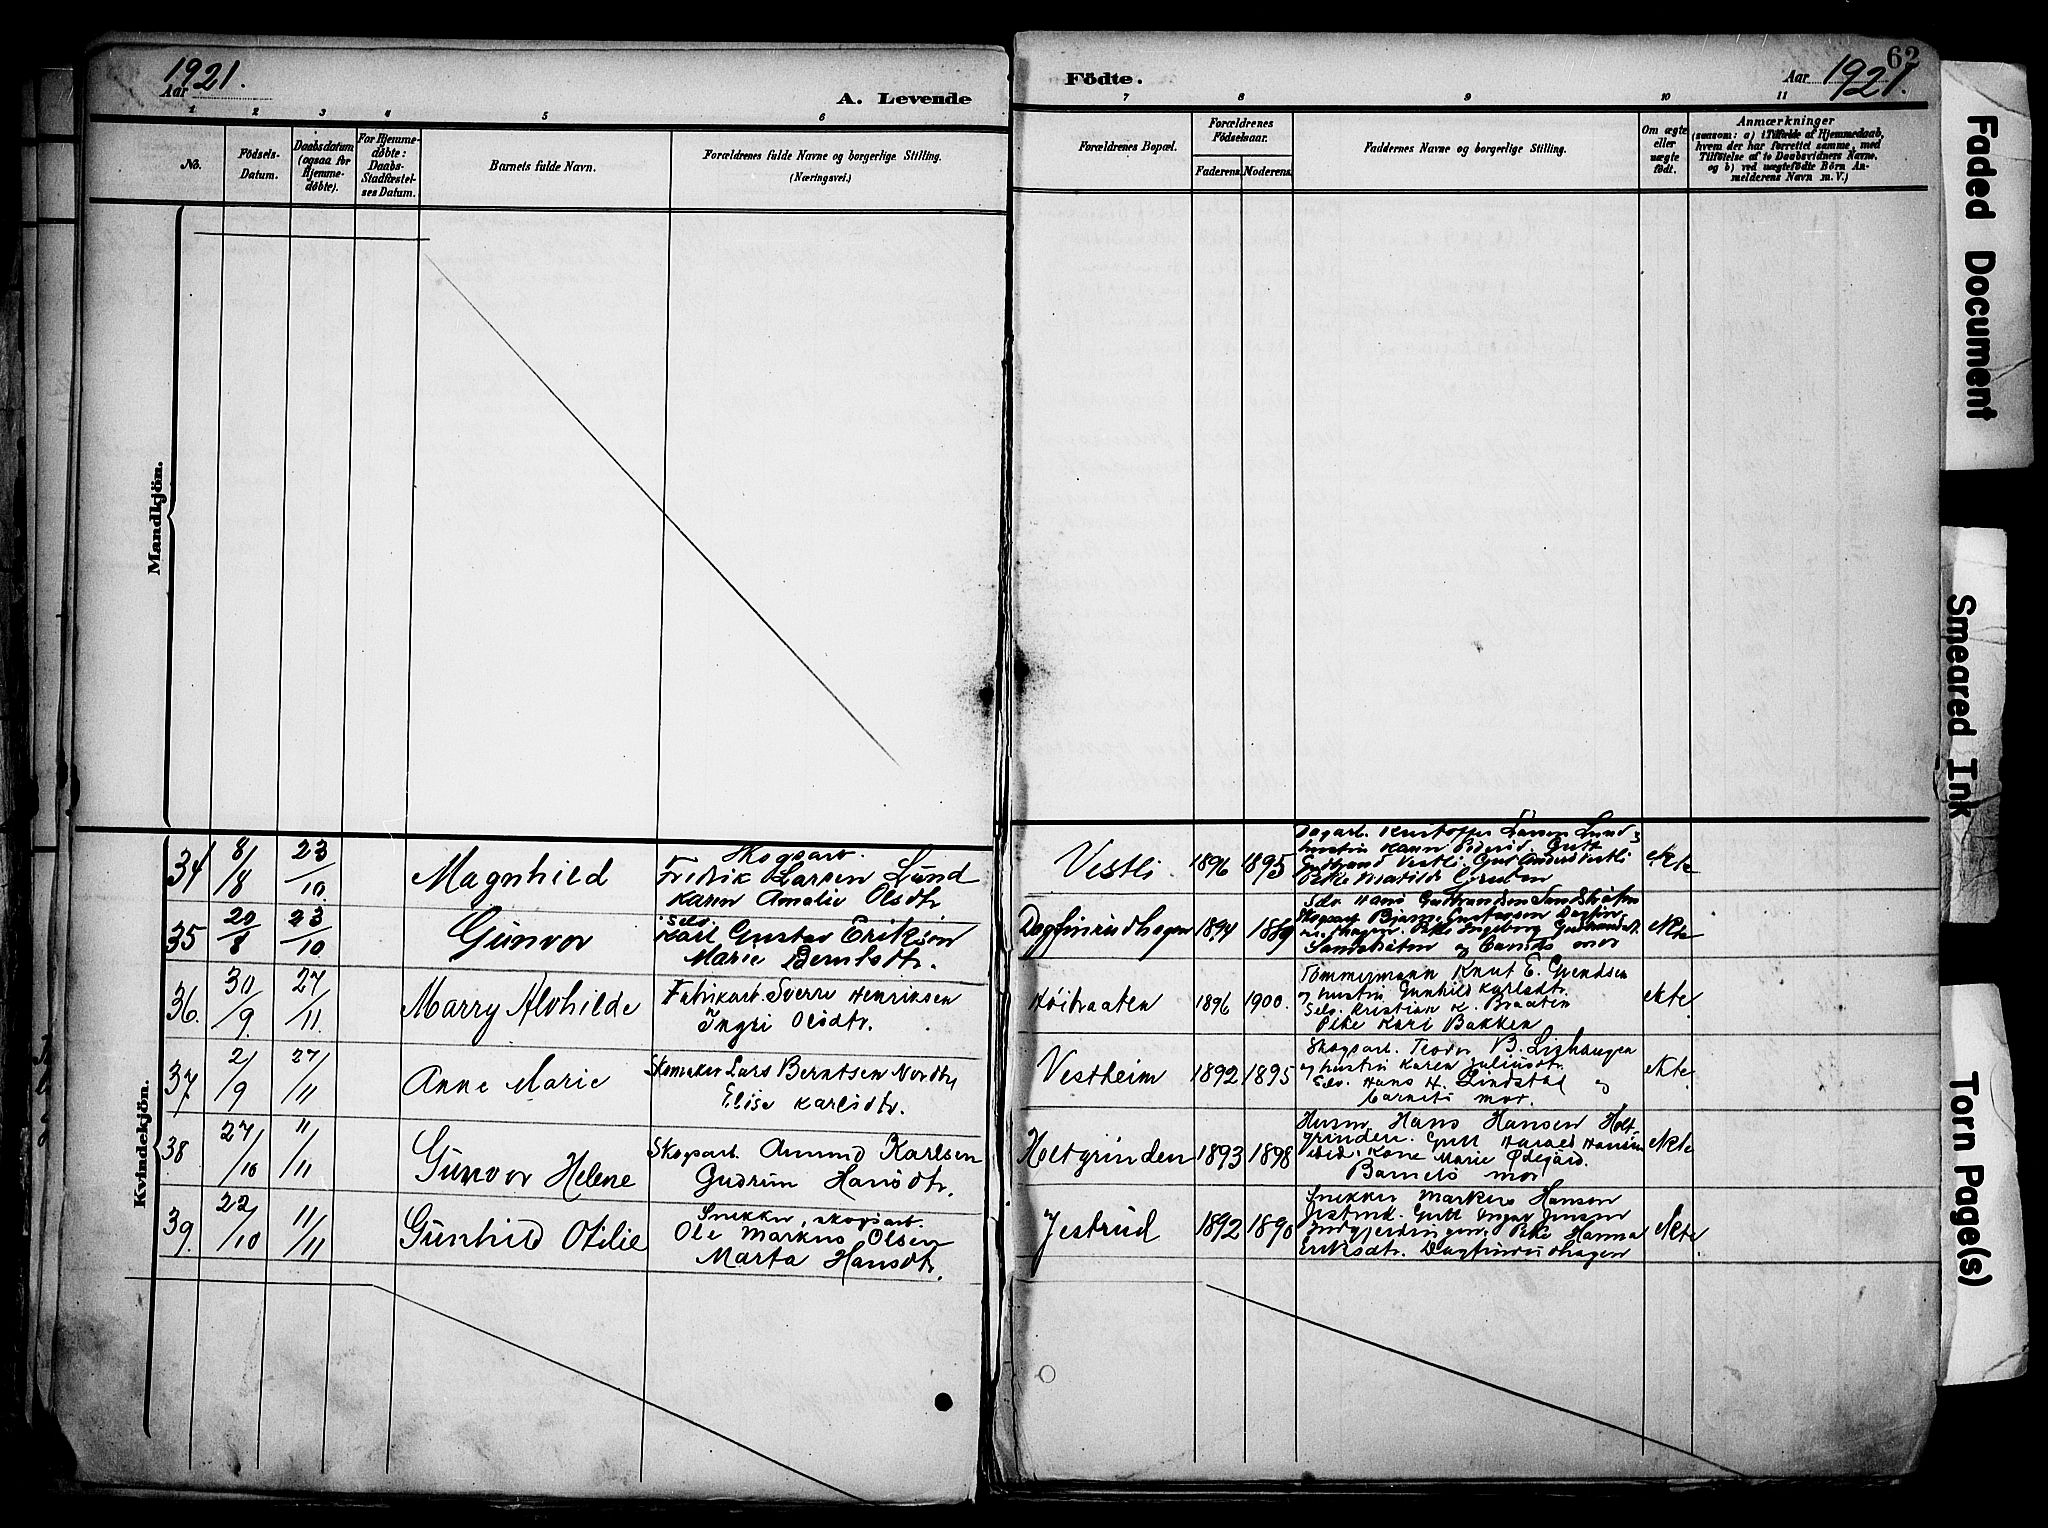 1921.
Aar
A. Levende
Födte.
Aar 1921.
62
1 2 3 4 5 6 7 8 9 10 11
No.
Födsels-
Datum.
Daabsdatum
(ogsaa for
Hjemme-
døbte).
For Hjemme-
døbte:
Daabs-
Stadfæstel-
ses Datum.
Barnets fulde Navn.
Forældrenes fulde Navne og borgerlige Stilling.
(Næringsvei.)
Forældrenes Bopæl.
Forældrenes
Födselsaar.
Faderens. Moderens.
Faddernes Navne og borgerlige Stilling.
Om ægte
eller
uægte
født.
Anmærkninger
(saasom: a) i Tilfælde af Hjemmedaab,
hvem der har forrettet samme, med
Tilføielse af to Daabsvidners Navne.
og b) ved uægtefødte Børn An-
melderens Navn m. V.)
Mandkjön.
Kvindekjön.
34 8/8 23/10. Magnhild
Skogsarb.
Fredrik Larsen Lund
Karen Amalie Olsdtr
Vestli 1896 1895
Dagarb. Kristoffer Larsen Lund
hustru Karen
Gudbrand Vestli. Gut Anders Vestli
Pike Matilde
ekte
35 20/8 23/10 Gunvor
Selv.
Karl Gustav Eriksen
Marie Berntsdtr.
Dagfinrudhagen 1894 1889
Selv. Hans Gudbrandsen Sandbråten
Skogsarb. Bjarne Gustavsen Dagfin-
rudhagen. Pike Ingeborg Gudbrandsdt.
Sandbråten og Barnets mor
ekte
36. 30/9. 27/11. Marry Alvhilde
Fabrikarb. Sverre Henriksen
Ingri Olsdtr.
Höibraaten 1896 1900.
Tömmermann Knut E.
og hustru Gunhild Karlsdtr.
Selv. Kristian K. Braaten
Pike Kari Bakken
ekte.
37 2/9 27/11 Anne Marie
Skomaker Lars Berntsen Nordby
Elise Karlsdtr.
Vestheim 1892 1895
Skogsarb. Teodor B. Lishaugen
og hustru Karen Juliusdtr.
Selv. Hans H. Lindstad og
barnets mor.
ekte.
38 27/10 11/11 Gunvor Helene
Skogsarb. Amund Karlsen
Gudrun Hansdtr.
Holtgrinden 1893 1898
Husm. Hans Hansen Holt
grinden. Gutt Harald Hansen
ibid. Kone Marie Ødegård.
Barnets mor
ekte
39. 22/10 11/11 Gunhild Otilie
Snekker, skogsarb.
Ole Markus Olsen
Marta Hansdtr.
Jestrud 1892 1890
Snekker Markus Hansen
Jestrud. Gutt Ingar Jensen
Indgjerdingen. Pike Hanna
Eriksdtr. Dagfinrudhagen
ekte
Faded Document
Smeared Ink
Torn Page(s)